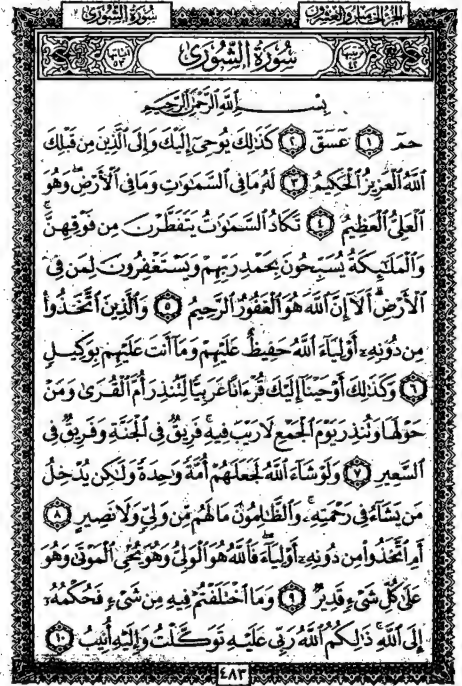 الجزء الخامس والعشرون
سورة الشورى
ترتيبها ٤٢
سُورَةُ الشُّورَىٰ
آياتها ٥٣
بِسْمِ ٱللَّهِ ٱلرَّحْمَٰنِ ٱلرَّحِيمِ
حمٓ ١ عٓسٓقٓ ٢ كَذَٰلِكَ يُوحِىٓ إِلَيْكَ وَإِلَى ٱلَّذِينَ مِن قَبْلِكَ
ٱللَّهُ ٱلْعَزِيزُ ٱلْحَكِيمُ ٣ لَهُۥ مَا فِى ٱلسَّمَٰوَٰتِ وَمَا فِى ٱلْأَرْضِ ۖ وَهُوَ
ٱلْعَلِىُّ ٱلْعَظِيمُ ٤ تَكَادُ ٱلسَّمَٰوَٰتُ يَتَفَطَّرْنَ مِن فَوْقِهِنَّ ۚ
وَٱلْمَلَٰٓئِكَةُ يُسَبِّحُونَ بِحَمْدِ رَبِّهِمْ وَيَسْتَغْفِرُونَ لِمَن فِى
ٱلْأَرْضِ ۗ أَلَآ إِنَّ ٱللَّهَ هُوَ ٱلْغَفُورُ ٱلرَّحِيمُ ٥ وَٱلَّذِينَ ٱتَّخَذُوا۟
مِن دُونِهِۦٓ أَوْلِيَآءَ ٱللَّهُ حَفِيظٌ عَلَيْهِمْ وَمَآ أَنتَ عَلَيْهِم بِوَكِيلٍ
٦ وَكَذَٰلِكَ أَوْحَيْنَآ إِلَيْكَ قُرْءَانًا عَرَبِيًّا لِّتُنذِرَ أُمَّ ٱلْقُرَىٰ وَمَنْ
حَوْلَهَا وَتُنذِرَ يَوْمَ ٱلْجَمْعِ لَا رَيْبَ فِيهِ ۚ فَرِيقٌ فِى ٱلْجَنَّةِ وَفَرِيقٌ فِى
ٱلسَّعِيرِ ٧ وَلَوْ شَآءَ ٱللَّهُ لَجَعَلَهُمْ أُمَّةً وَٰحِدَةً وَلَٰكِن يُدْخِلُ
مَن يَشَآءُ فِى رَحْمَتِهِۦ ۚ وَٱلظَّٰلِمُونَ مَا لَهُم مِّن وَلِىٍّ وَلَا نَصِيرٍ ٨
أَمِ ٱتَّخَذُوا۟ مِن دُونِهِۦٓ أَوْلِيَآءَ ۖ فَٱللَّهُ هُوَ ٱلْوَلِىُّ وَهُوَ يُحْىِ ٱلْمَوْتَىٰ وَهُوَ
عَلَىٰ كُلِّ شَىْءٍ قَدِيرٌ ٩ وَمَا ٱخْتَلَفْتُمْ فِيهِ مِن شَىْءٍ فَحُكْمُهُۥٓ
إِلَى ٱللَّهِ ۚ ذَٰلِكُمُ ٱللَّهُ رَبِّى عَلَيْهِ تَوَكَّلْتُ وَإِلَيْهِ أُنِيبُ ١٠
٤٨٣